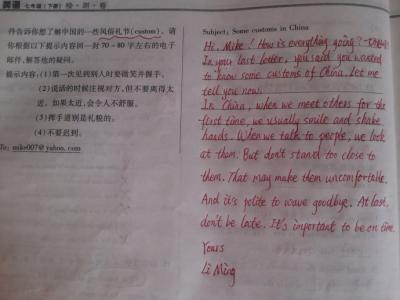 英语 七年级(下册) 绘·测·卷
件告诉你想了解中国的一些风俗礼节(custom)。请
你根据以下提示内容回一封70-80字左右的电子
邮件,解答他的疑问。
提示内容:(1)第一次见到别人时要微笑并握手。
(2)说话的时候注视对方,但不要离得太
近。如果太近,会令人不舒服。
(3)挥手道别是礼貌的。
(4)不要迟到。
To: mike007@yahoo.com
Subject: Some customs in China
Hi, Mike! How is everything going?
In your last letter, you said you wanted
to know some customs of China. Let me
tell you now.
In China, when we meet others for the
first time, we usually smile and shake
hands. When we talk to people, we look
at them. But don't stand too close to
them. That may make them uncomfortable.
And it's polite to wave goodbye. At last,
don't be late. It's important to be on time.
Yours
Li Ming